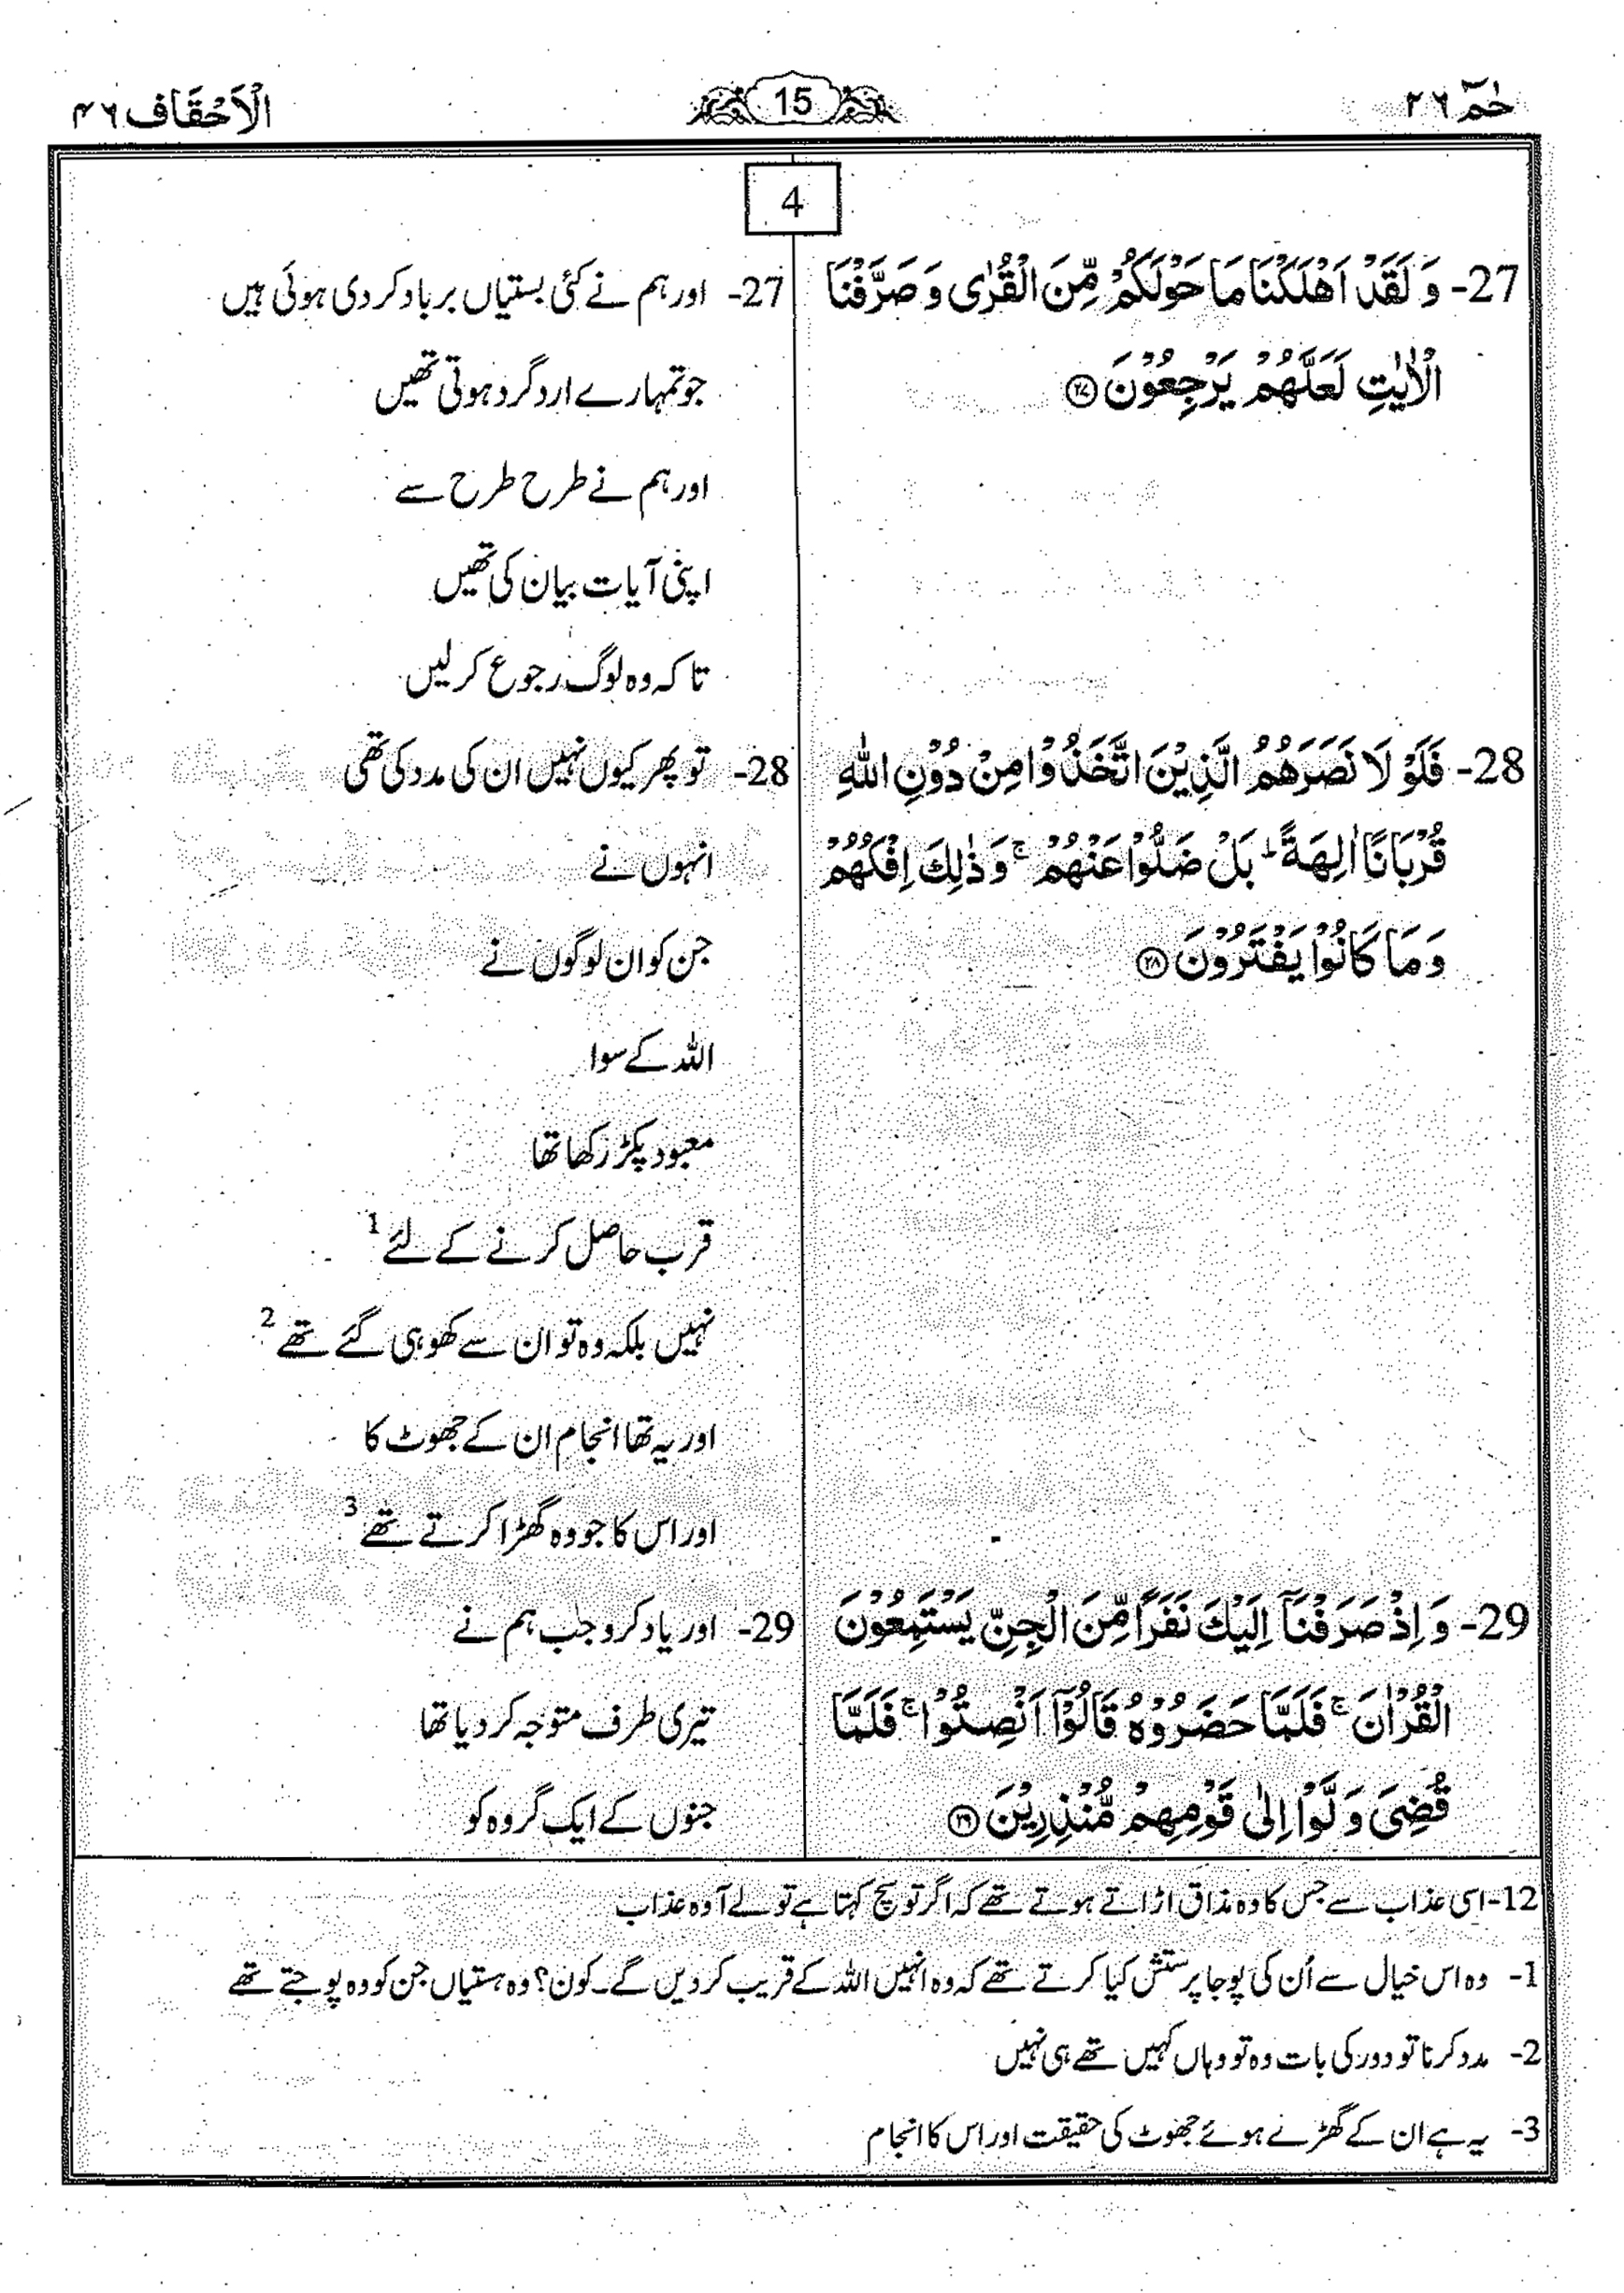 حٰمٓ ۲۶
15
اَلْاَحْقَاف ۴۶
4
27- وَ لَقَدْ اَهْلَكْنَا مَا حَوْلَكُمْ مِّنَ الْقُرٰى وَ صَرَّفْنَا
الْاٰيٰتِ لَعَلَّهُمْ يَرْجِعُوْنَ ﴿۲۷﴾
27- اور ہم نے کئی بستیاں برباد کر دی ہوئی ہیں
جو تمہارے ارد گرد ہوتی تھیں
اور ہم نے طرح طرح سے
اپنی آیات بیان کی تھیں
تا کہ وہ لوگ رجوع کر لیں
28- فَلَوْ لَا نَصَرَهُمُ الَّذِيْنَ اتَّخَذُوْا مِنْ دُوْنِ اللّٰهِ
قُرْبَانًا اٰلِهَةً ؕ بَلْ ضَلُّوْا عَنْهُمْ ۚ وَ ذٰلِكَ اِفْكُهُمْ
وَ مَا كَانُوْا يَفْتَرُوْنَ ﴿۲۸﴾
28- تو پھر کیوں نہیں ان کی مدد کی تھی
انہوں نے
جن کو ان لوگوں نے
اللہ کے سوا
معبود پکڑ رکھا تھا
قرب حاصل کرنے کے لئے 1
نہیں بلکہ وہ تو ان سے کھو ہی گئے تھے 2
اور یہ تھا انجام ان کے جھوٹ کا
اور اس کا جو وہ گھڑا کرتے تھے 3
29- وَ اِذْ صَرَفْنَاۤ اِلَيْكَ نَفَرًا مِّنَ الْجِنِّ يَسْتَمِعُوْنَ
الْقُرْاٰنَ ۚ فَلَمَّا حَضَرُوْهُ قَالُوْۤا اَنْصِتُوْا ۚ فَلَمَّا
قُضِيَ وَ لَّوْا اِلٰى قَوْمِهِمْ مُّنْذِرِيْنَ ﴿۲۹﴾
29- اور یاد کرو جب ہم نے
تیری طرف متوجہ کر دیا تھا
جنوں کے ایک گروہ کو
12- اسی عذاب سے جس کا وہ مذاق اڑاتے ہوتے تھے کہ اگر تو سچ کہتا ہے تو لے آ وہ عذاب
1- وہ اس خیال سے اُن کی پوجا پرستش کیا کرتے تھے کہ وہ انہیں اللہ کے قریب کر دیں گے۔ کون؟ وہ ہستیاں جن کو وہ پوجتے تھے
2- مدد کرنا تو دور کی بات وہ تو وہاں کہیں تھے ہی نہیں
3- یہ ہے ان کے گھڑے ہوئے جھوٹ کی حقیقت اور اس کا انجام